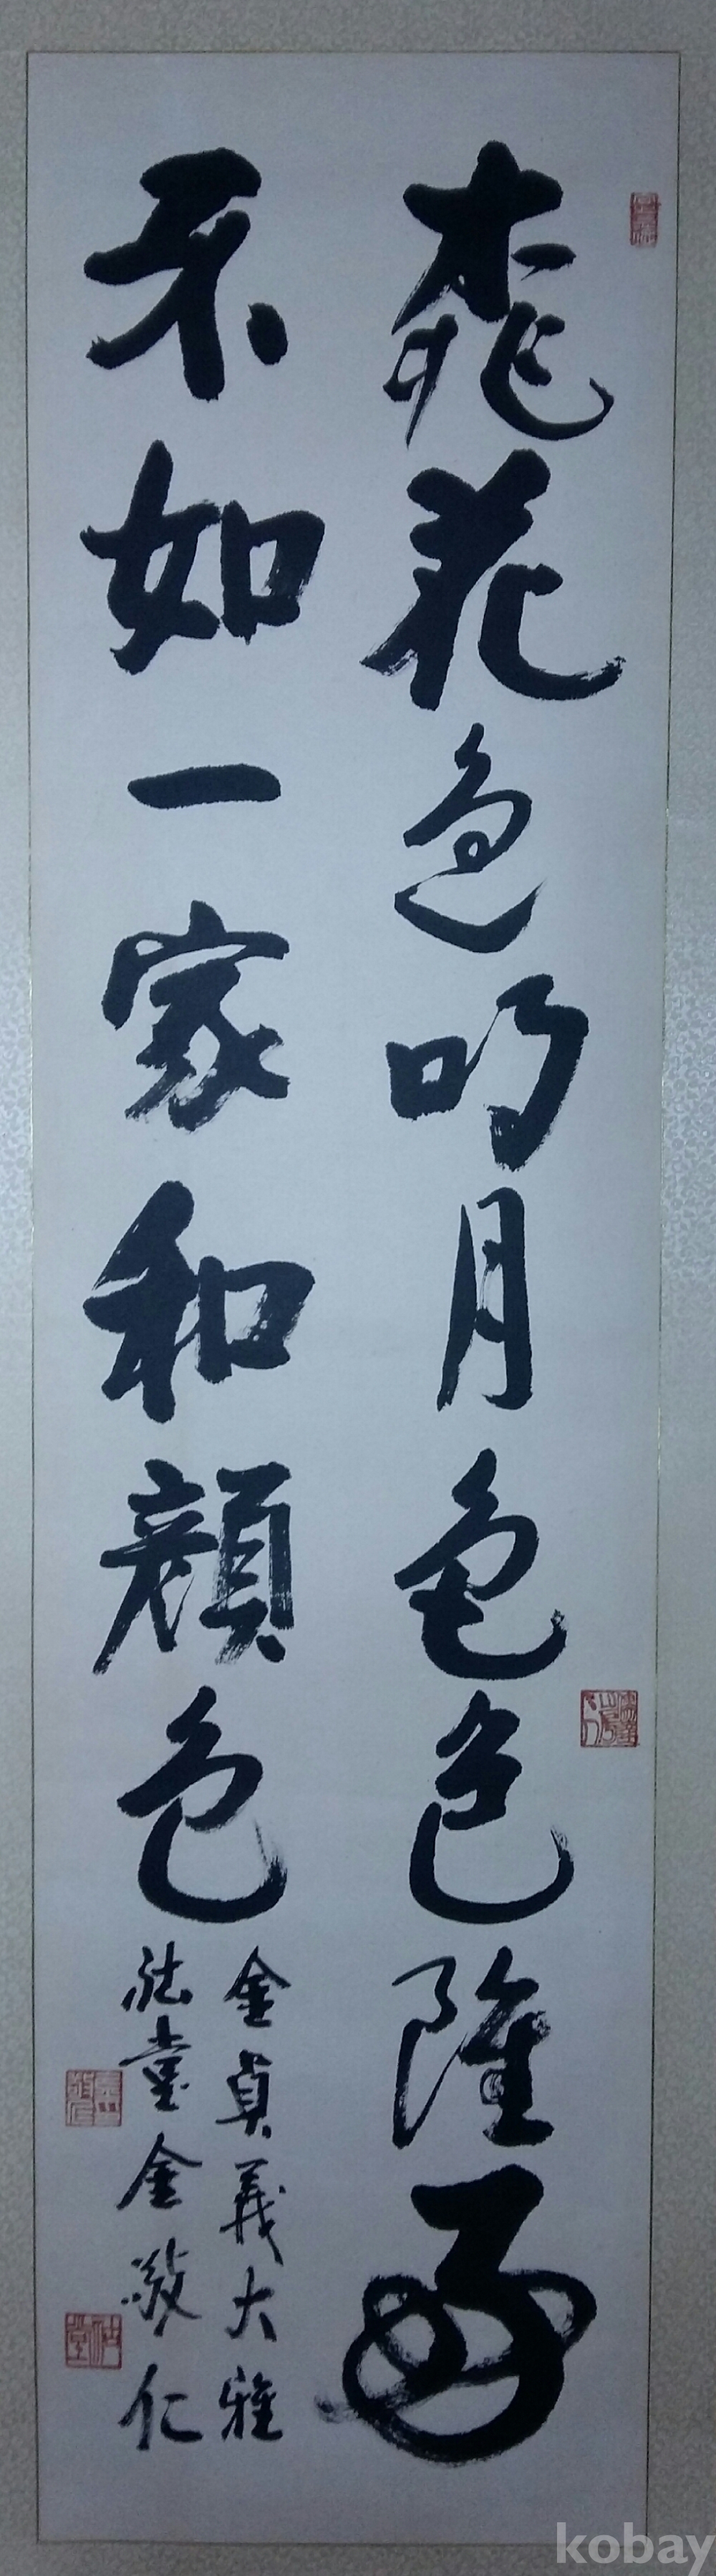 桃花色明月色色雖好
不如一家和顔色
金貞義大雅
祜堂金敬仁
kobay